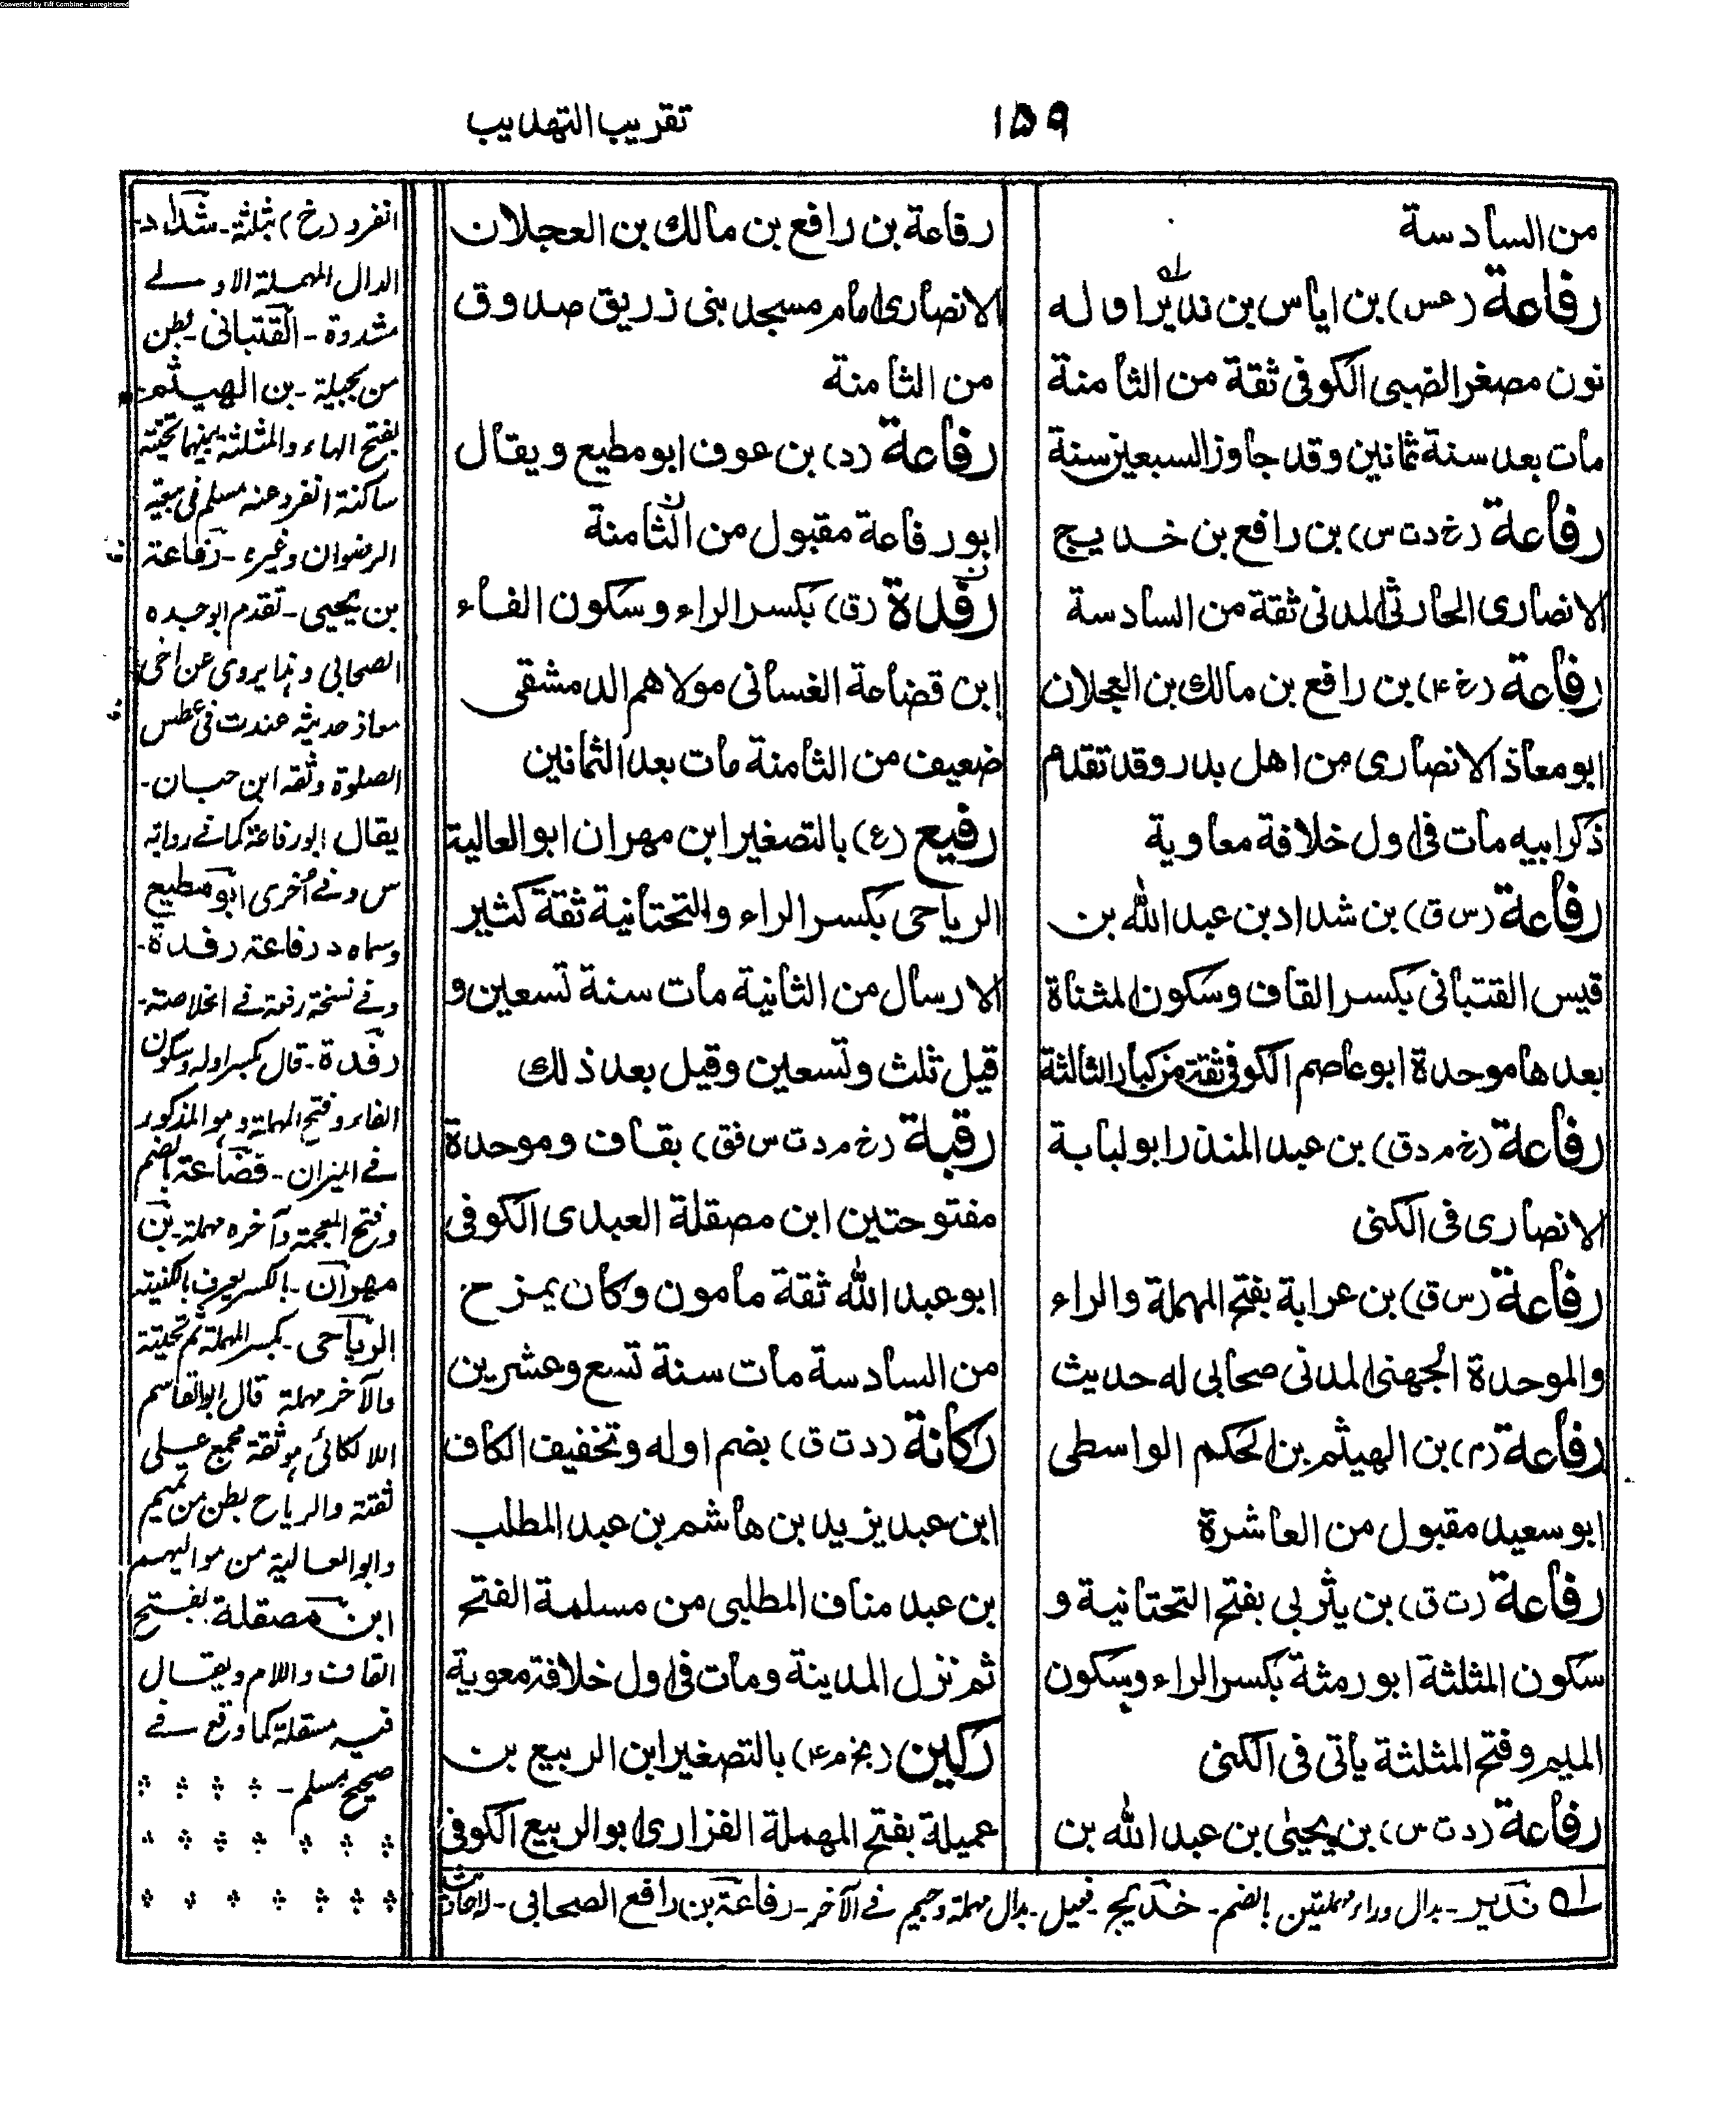 Converted by Tiff Combine - unregistered
١٥٩
تقريب التهذيب
من السادسة
رفاعة (عس) بن اياس بن نذير اوله
نون مصغر الضبى الكوفى ثقة من الثامنة
مات بعد سنة ثمانين وقد جاوز السبعين سنة
رفاعة (خ د ت س) بن رافع بن خديج
الانصارى الحارثى المدنى ثقة من السادسة
رفاعة (خ ۴) بن رافع بن مالك بن العجلان
ابو معاذ الانصارى من اهل بدر وقد تقدم
ذكر ابيه مات فى اول خلافة معاوية
رفاعة (س ق) بن شداد بن عبد الله بن
قيس القتبانى بكسر القاف وسكون المثناة
بعدها موحدة ابو عاصم الكوفى ثقة من كبار الثالثة
رفاعة (خ م د ق) بن عبد المنذر ابو لبابة
الانصارى فى الكنى
رفاعة (س ق) بن عرابة بفتح المهملة والراء
والموحدة الجهنى المدنى صحابى له حديث
رفاعة (م) بن الهيثم بن الحكم الواسطى
ابو سعيد مقبول من العاشرة
رفاعة (ت ق) بن يثربى بفتح التحتانية و
سكون المثلثة ابو رمثة بكسر الراء وسكون
الميم وفتح المثلثة ياتى فى الكنى
رفاعة (د ت س) بن يحيى بن عبد الله بن
رفاعة بن رافع بن مالك بن العجلان
الانصارى امام مسجد بنى زريق صدوق
من الثامنة
رفاعة (د) بن عوف ابو مطيع ويقال
ابو رفاعة مقبول من الثامنة
رفدة (ق) بكسر الراء وسكون الفاء
ابن قضاعة الغسانى مولاهم الدمشقى
ضعيف من الثامنة مات بعد الثمانين
رفيع (ع) بالتصغير ابن مهران ابو العالية
الرياحى بكسر الراء والتحتانية ثقة كثير
الارسال من الثانية مات سنة تسعين و
قيل ثلث وتسعين وقيل بعد ذلك
رقبة (خ م د ت س فق) بقاف وموحدة
مفتوحتين ابن مصقلة العبدى الكوفى
ابو عبد الله ثقة مامون وكان يمزح
من السادسة مات سنة تسع وعشرين
ركانة (د ت ق) بضم اوله وتخفيف الكاف
ابن عبد يزيد بن هاشم بن عبد المطلب
بن عبد مناف المطلبى من مسلمة الفتح
ثم نزل المدينة ومات فى اول خلافة معوية
ركين (بخ م ۴) بالتصغير ابن الربيع بن
عميلة بفتح المهملة الفزارى ابو الربيع الكوفى
انفرد (خ) بثلثة ـ شداد ـ
الدال المهملة الاولے
مشددة ـ القتبانى ـ بطن
من بجيلة ـ بن الهيثم ـ
بفتح الهاء والمثلثة بينهما تحتية
ساكنة انفرد عنه مسلم فى بيعة
الرضوان وغيره ـ رفاعة
بن يحيى ـ تقدم ابو جده
الصحابى وهذا يروى عن اخى
معاذ حديثه عند ت فى عطس
الصلوة وثقه ابن حبان ـ
يقال ابو رفاعة كما فے رواية
س وفے أخرى ابو مطيع
وسماه د رفاعة رفدة ـ
وفے نسخة رفعة فے الخلاصة ـ
رفدة ـ قال بكسر اوله وسكون
الفاء وفتح المهملة وهو المذكور
فے الميزان ـ قضاعة بالضم
وفتح المعجمة وآخره مهملة ـ بن
مهران ـ بالكسر يعرف بالكنية
الرياحى ـ بكسر المهملة ثم تحتية
والآخر مهملة قال ابو القاسم
اللالكائى هو ثقة مجمع على
ثقته والرياح بطن من تميم
وابو العالية من مواليهم
ابن مصقلة بفتح
القاف واللام ويقال
فيه مسقلة كما وقع فے
صحيح مسلم ـ
له نذير ـ بدال وراء مهملتين بالضم ـ خديج ـ فعيل ـ بدال مهملة وجيم فے الآخر ـ رفاعة بن رافع الصحابى ـ له احاديث